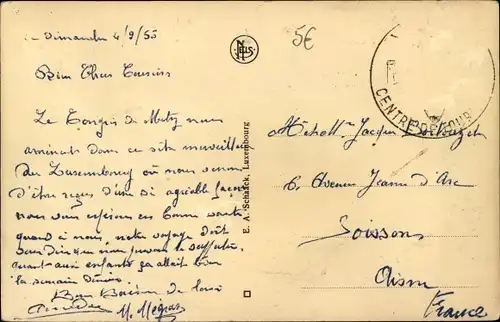 Dimanche 4/9/55
Bien Chers Cousins
Le Congrès de Metz nous
aminait dans ce site merveilleux
du Luxembourg où nous venons
d'être reçus d'une si agréable façon
nous vous espérons en bonne santé
quand à nous, notre voyage doit
vous dire que nous
quant aux enfants ça allait bien
la semaine dernière
Bon Baiser de tous
M.
E. A. Schaack, Luxembourg
NELS
5€
CENTRE DE JOUR
Jacques
6, Avenue Jeanne d'Arc
Soissons
Aisne
France